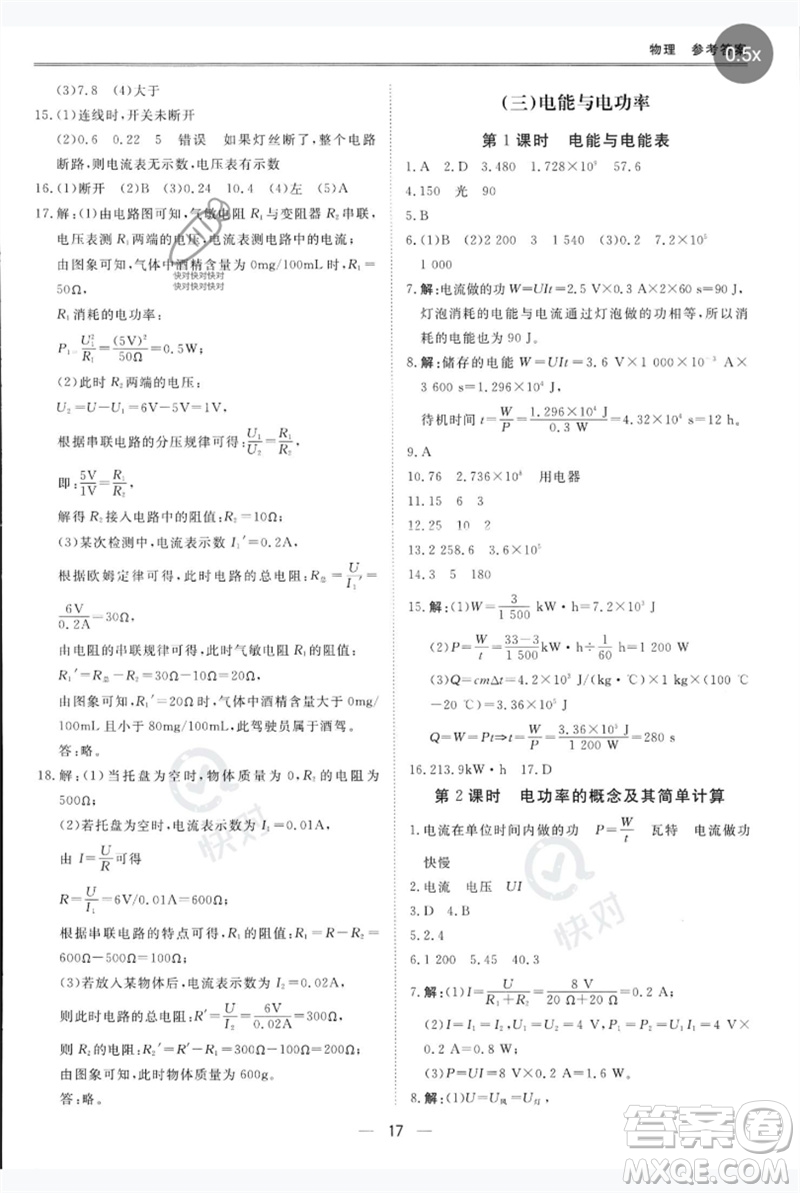 物理 参考答案
0.5x
(3)7.8 (4)大于
15.(1)连线时,开关未断开
(2)0.6 0.22 5 错误 如果灯丝断了,整个电路
断路,则电流表无示数,电压表有示数
16.(1)断开 (2)B (3)0.24 10.4 (4)左 (5)A
17.解:(1)由电路图可知,气敏电阻 R₁与变阻器 R₂串联,
电压表测 R₁ 两端的电压,电流表测电路中的电流;
由图象可知,气体中酒精含量为 0mg/100mL时,R₁=
50Ω,
R₁消耗的电功率:
P₁=U₁²/R₁=(5V)²/50Ω=0.5W;
(2)此时 R₂ 两端的电压:
U₂=U−U₁=6V−5V=1V,
根据串联电路的分压规律可得:U₁/U₂=R₁/R₂,
即:5V/1V=R₁/R₂,
解得 R₂ 接入电路中的阻值:R₂=10Ω;
(3)某次检测中,电流表示数 I₁′=0.2A,
根据欧姆定律可得,此时电路的总电阻:R总=U/I₁′=
6V/0.2A=30Ω,
由电阻的串联规律可得,此时气敏电阻的阻值:
R₁′=R总−R₂=30Ω−10Ω=20Ω,
由图象可知,R₁′=20Ω 时,气体中酒精含量大于 0mg/
100mL 且小于 80mg/100mL,此驾驶员属于酒驾。
答:略。
18.解:(1)当托盘为空时,物体质量为 0,此时 R₂ 的电阻为
500Ω;
(2)若托盘为空时,电流表示数为 I₁=0.01A,
由 I=U/R可得
R=U/I₁=6V/0.01A=600Ω;
根据串联电路的特点可得,R₁ 的阻值:R₁=R−R₂=
600Ω−500Ω=100Ω;
(3)若放入某物体后,电流表示数为 I₂=0.02A,
则此时电路的总电阻:R′=U/I₂=6V/0.02A=300Ω,
则 R₂ 的阻值:R₂′=R′−R₁=300Ω−100Ω=200Ω,
由图乙可知此时物体质量为 600g。
答:略。
快对快对快对
快对快对快对
快对
(三)电能与电功率
第 1 课时 电能与电能表
1.A 2.D 3.480 1.728×10⁹ 57.6
4.150 光 90
5.B
6.(1)B (2)2 200 3 1 540 (3)0.2 7.2×10⁵
1 000
7.解:电流做的功 W=UIt=2.5 V×0.3 A×2×60 s=90 J,
灯泡消耗的电能与电流通过灯泡做的功相等,所以消
耗的电能也为 90 J。
8.解:储存的电能 W=UIt=3.6 V×1 000×10⁻³ A×
3 600 s=1.296×10⁴ J
待机时间 t=W/P=1.296×10⁴ J/0.3 W=4.32×10⁴ s
9.A
10.76 2.736×10⁸ 用电器
11.15 6 3
12.25 10 2
13.2 258.6 3.6×10⁵
14.3 5 180
15.解:(1)W=3/1 500 kW·h=7.2×10³ J
(2)P=W/t=33−3/1 500 kW·h÷1/60 h=1 200 W
(3)Q=cmΔt=4.2×10³ J/(kg·℃)×1 kg×(100
−20 ℃)=3.36×10⁵ J
Q=W=Pt⇒t=W/P=3.36×10⁵ J/1 200 W=280 s
16.213.9kW·h 17.D
第 2 课时 电功率的概念及其简单计算
1.电流在单位时间内做的功 P=W/t 瓦特 电流做功
快慢
2.电流 电压 UI
3.D 4.B
5.2.4
6.1 200 5.45 40.3
7.解:(1)I=U/R₁+R₂=8 V/20 Ω+20 Ω=0.2 A;
(3)P=UI=8 V×0.2 A=1.6 W
8.解:(1)U=U风=U灯,
快对
17
答案卷
MXQE.COM